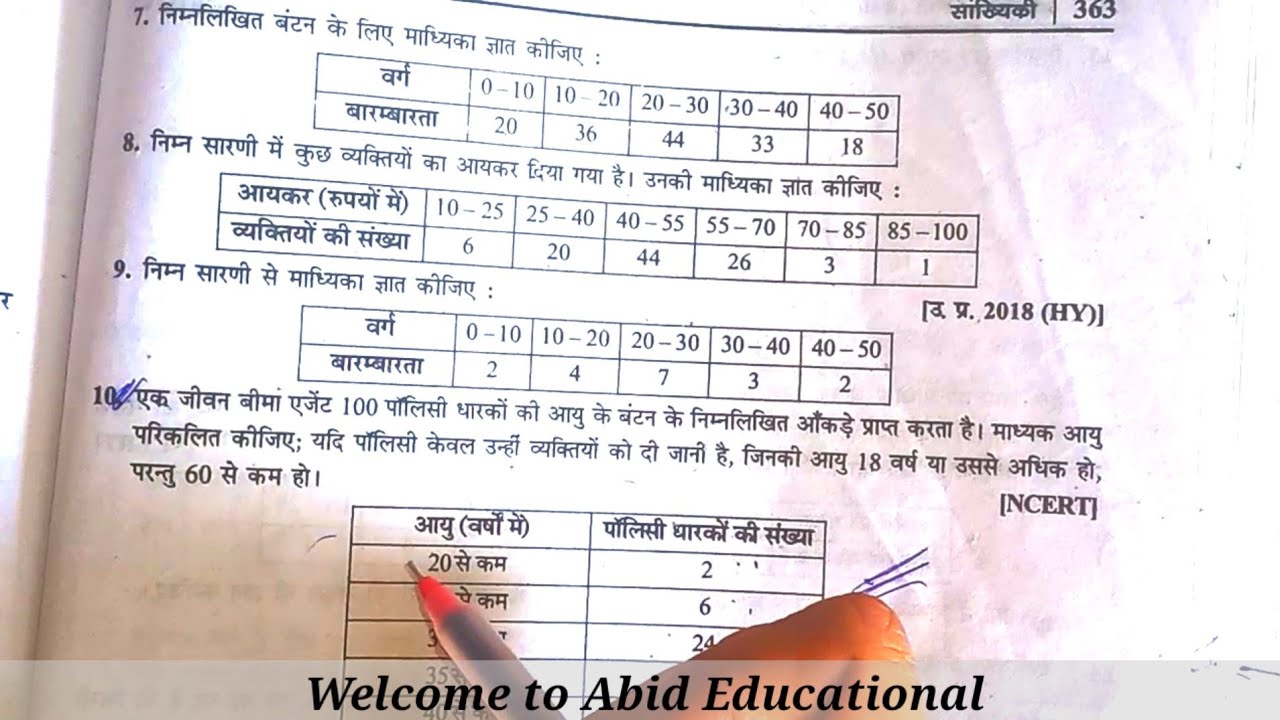 सांख्यिकी | 363
7. निम्नलिखित बंटन के लिए माध्यिका ज्ञात कीजिए :
वर्ग 0–10 10–20 20–30 30–40 40–50
बारम्बारता 20 36 44 33 18
8. निम्न सारणी में कुछ व्यक्तियों का आयकर दिया गया है। उनकी माध्यिका ज्ञात कीजिए :
आयकर (रुपयों में) 10–25 25–40 40–55 55–70 70–85 85–100
व्यक्तियों की संख्या 6 20 44 26 3 1
9. निम्न सारणी से माध्यिका ज्ञात कीजिए :
[उ. प्र. 2018 (HY)]
वर्ग 0–10 10–20 20–30 30–40 40–50
बारम्बारता 2 4 7 3 2
10. एक जीवन बीमा एजेंट 100 पॉलिसी धारकों की आयु के बंटन के निम्नलिखित आँकड़े प्राप्त करता है। माध्यक आयु
परिकलित कीजिए; यदि पॉलिसी केवल उन्हीं व्यक्तियों को दी जाती है, जिनकी आयु 18 वर्ष या उससे अधिक हो,
परन्तु 60 से कम हो।
[NCERT]
आयु (वर्षों में) पॉलिसी धारकों की संख्या
20 से कम 2
से कम 6
24
35
40 से
Welcome to Abid Educational